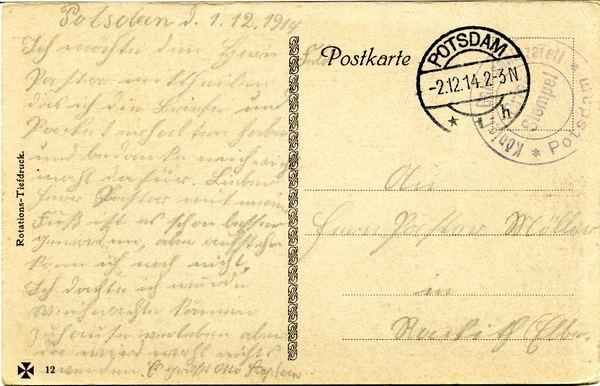 Potsdam d. 1.12.1914
Ich möchte dem Herrn
Pastor mittheilen
das ich die Briefe und
Packet erhalten habe
und bedanke mich
mahl dafür. Lieber
Herr Pastor mit mein
Fuß ist es schon besser
geworden, aber aufstehn
kann ich noch nicht.
Ich dachte ich würde
Weihnachten können
zuhause verleben aber
da wird wohl nichts
werden. Es grüßt Otto
Rotations-Tiefdruck.
12
Feld Postkarte
POTSDAM
-2.12.14.2-3N
* 1 h
Stempel
* Potsdam *
An
Herrn Pastor Möller
in
(Elbe.